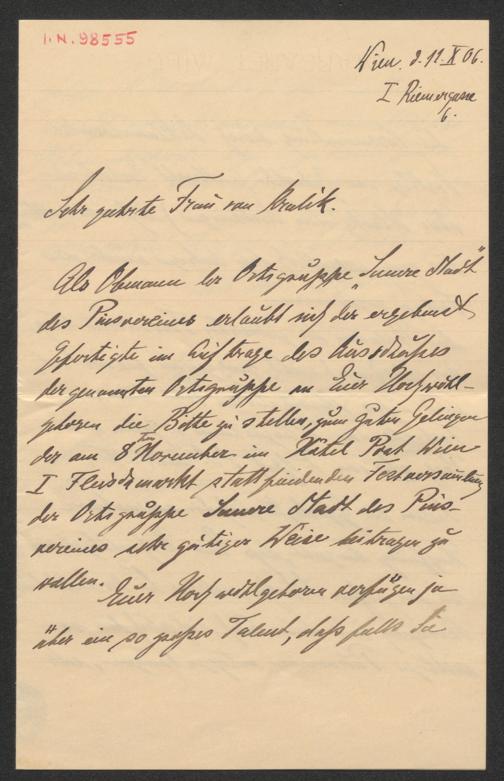 I.N. 98555
Wien. d. 11. X 06.
I Riemergasse
6.
Sehr geehrte Frau von Kralik.
Als Obmann der Ortsgruppe „Innere Stadt“
des Piusvereines erlaubt sich der ergebenst
Gefertigte im Auftrage des Ausschußes
der genannten Ortsgruppe an Euer Hochwohl-
geboren die Bitte zu stellen, zum guten Gelingen
der am 8ten November im Hôtel Post Wien
I Fleischmarkt stattfindenden Festversammlung
der Ortsgruppe Innere Stadt des Pius-
vereines sehr gütiger Weise beitragen zu
wollen.
Euer Hochwohlgeboren verfügen ja
über ein so großes Talent, daß falls Sie